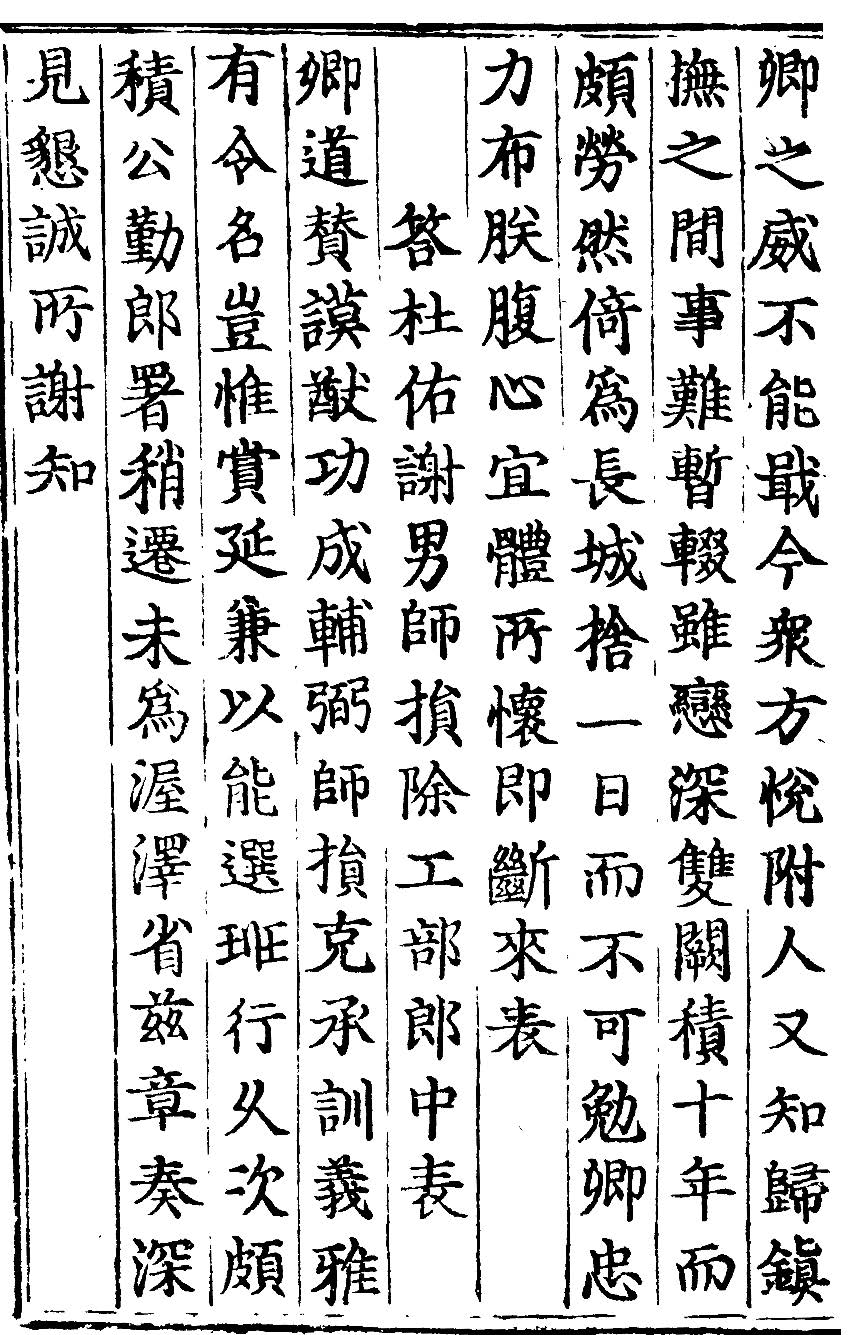 卿之威不能戢今衆方悅附人又知歸鎮
撫之間事難暫輟雖戀深雙闕積十年而
頗勞然倚爲長城捨一日而不可勉卿忠
力布朕腹心宜體所懷即斷來表
答杜佑謝男師損除工部郎中表
卿道賛謨猷功成輔弼師損克承訓義雅
有令名豈惟賞延兼以能選班行久次頗
積公勤郎署稍遷未爲渥澤省兹章奏深
見懇誠所謝知